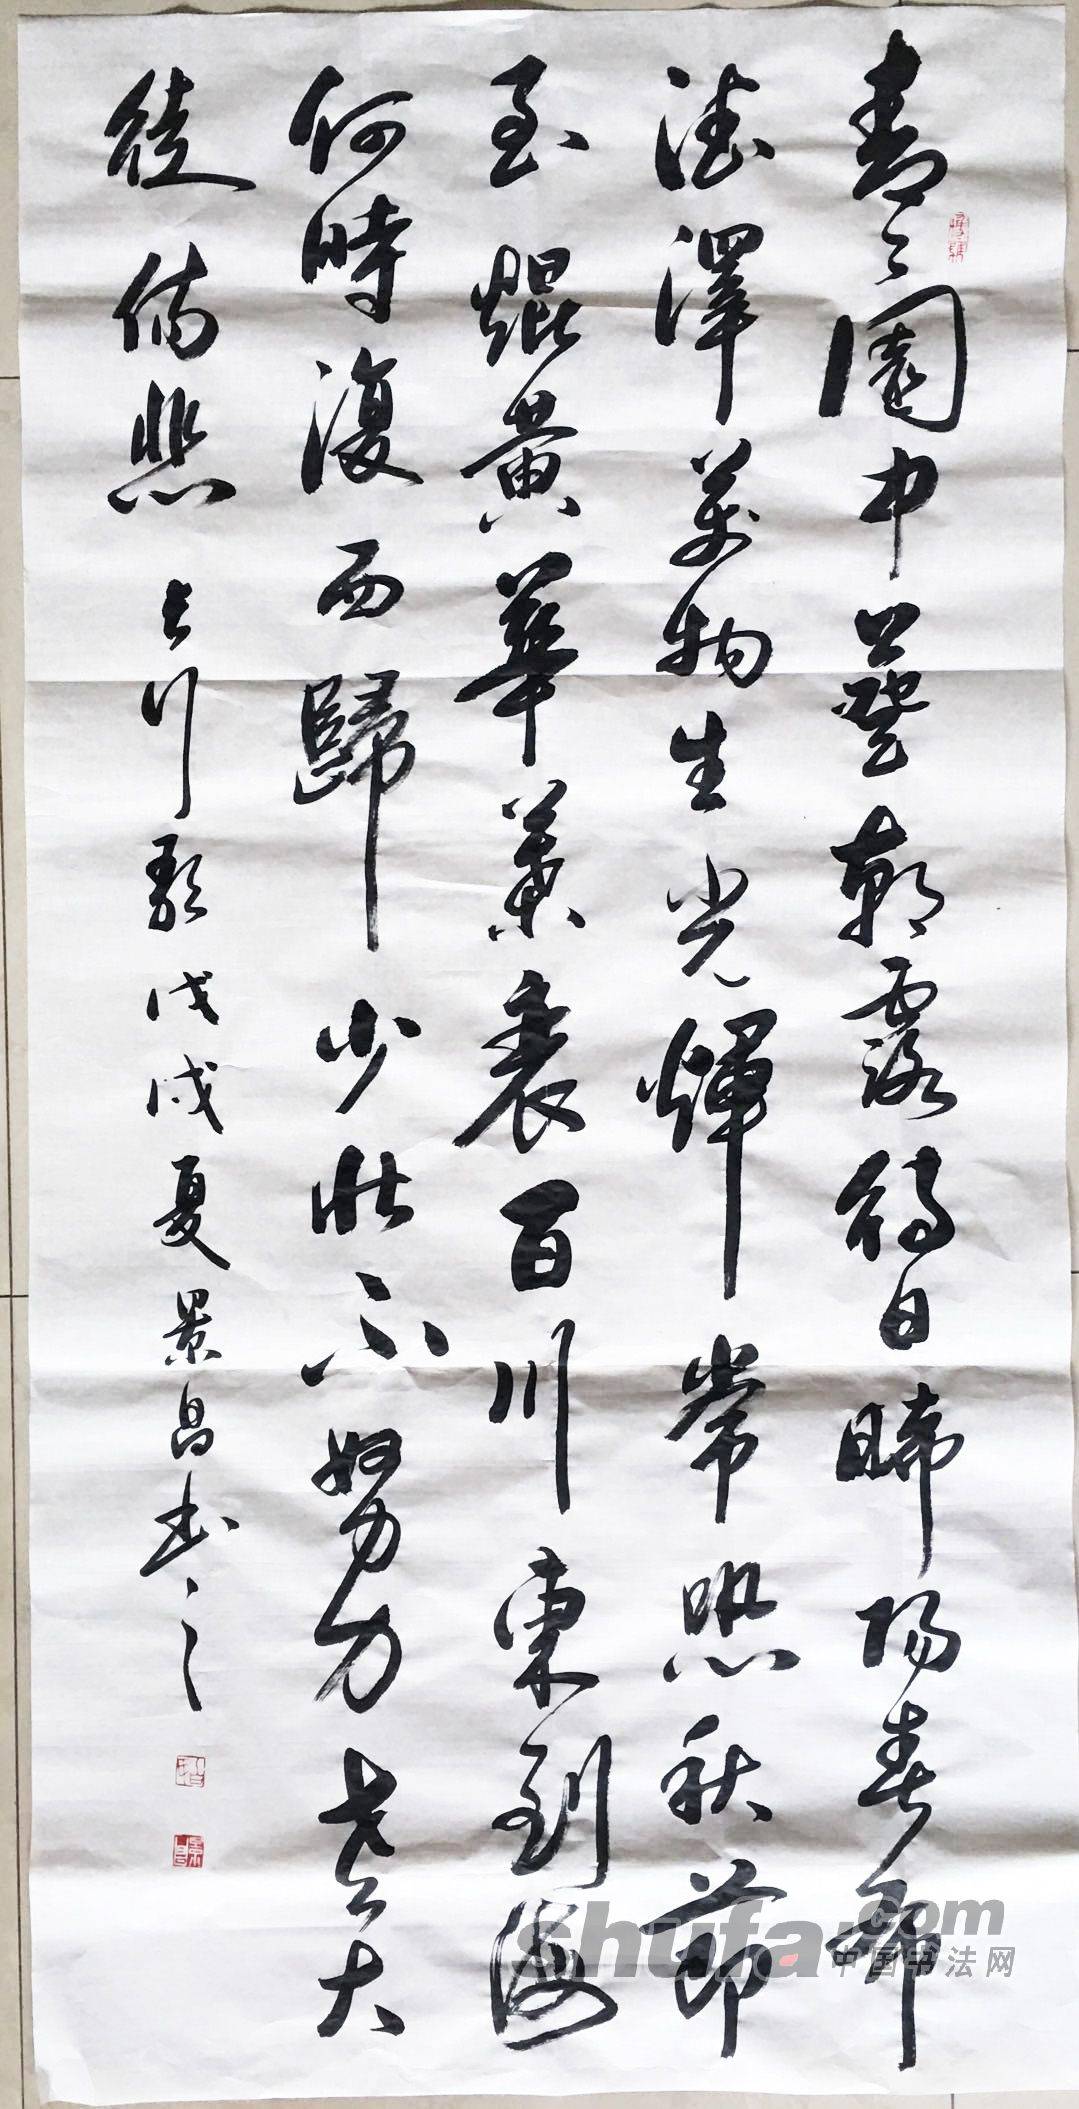 青々園中葵朝露待日晞陽春布
德澤萬物生光輝常恐秋節
至焜黃華葉衰百川東到海
何時復西歸少壯不努力老大
徒傷悲 长行歌 戊戌夏景昌书之
shufa.com
中国书法网